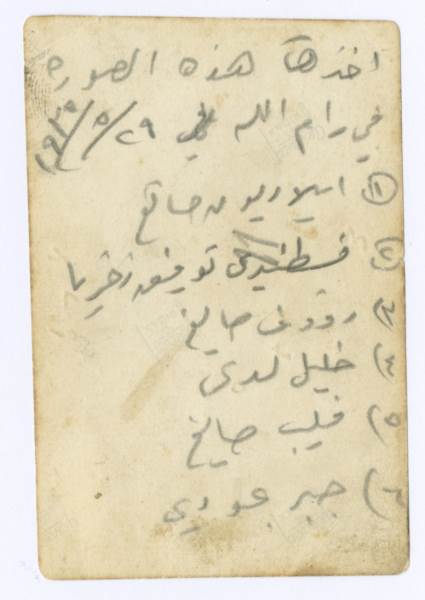 اخذت هذه الصوره
في رام الله في ٢٩/٥/١٩٣٥
(١) ايلاريون صايغ
(٢) قسطندي توفيق زخريا
(٣ رؤوف صايغ
(٤ خليل لدى
(٥ فيليب صايغ
(٦ جبر جوري